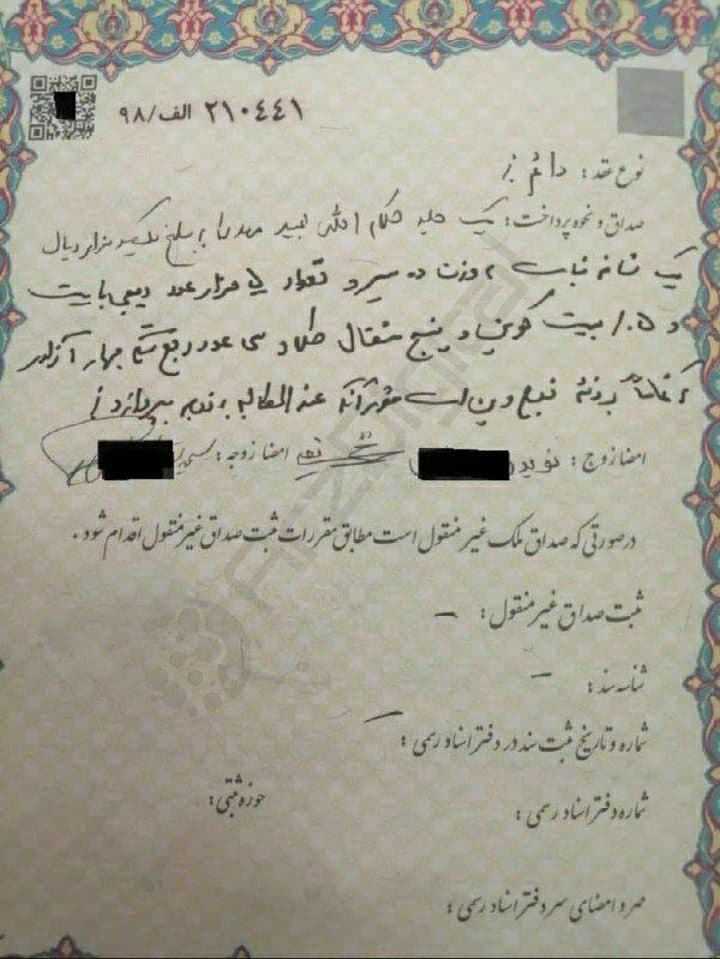 ۲۱۰۴۴۱ الف/۹۸
نوع عقد: دائم
صداق و نحوه پرداخت: یک جلد کلام الله مجید مهریه به مبلغ یکصد هزار ریال
یک شاخه نبات به وزن ده سیر و تعداد هزار عدد دیجی بایت
و ۱.۵ بیت کوین و پنج مثقال طلا و سی عدد ربع سکه بهار آزادی
که تماماً بر ذمه زوج دین است عندالمطالبه به زوجه بپردازد
امضا زوج: نوید امضا زوجه:
درصورتی که صداق ملک غیر منقول است مطابق مقررات ثبت صداق غیر منقول اقدام شود.
ثبت صداق غیر منقول: –
شناسه سند: –
شماره و تاریخ ثبت سند در دفتر اسناد رسمی: –
شماره دفتر اسناد رسمی: حوزه ثبتی:
مهر و امضای سردفتر اسناد رسمی:
ArzDigital